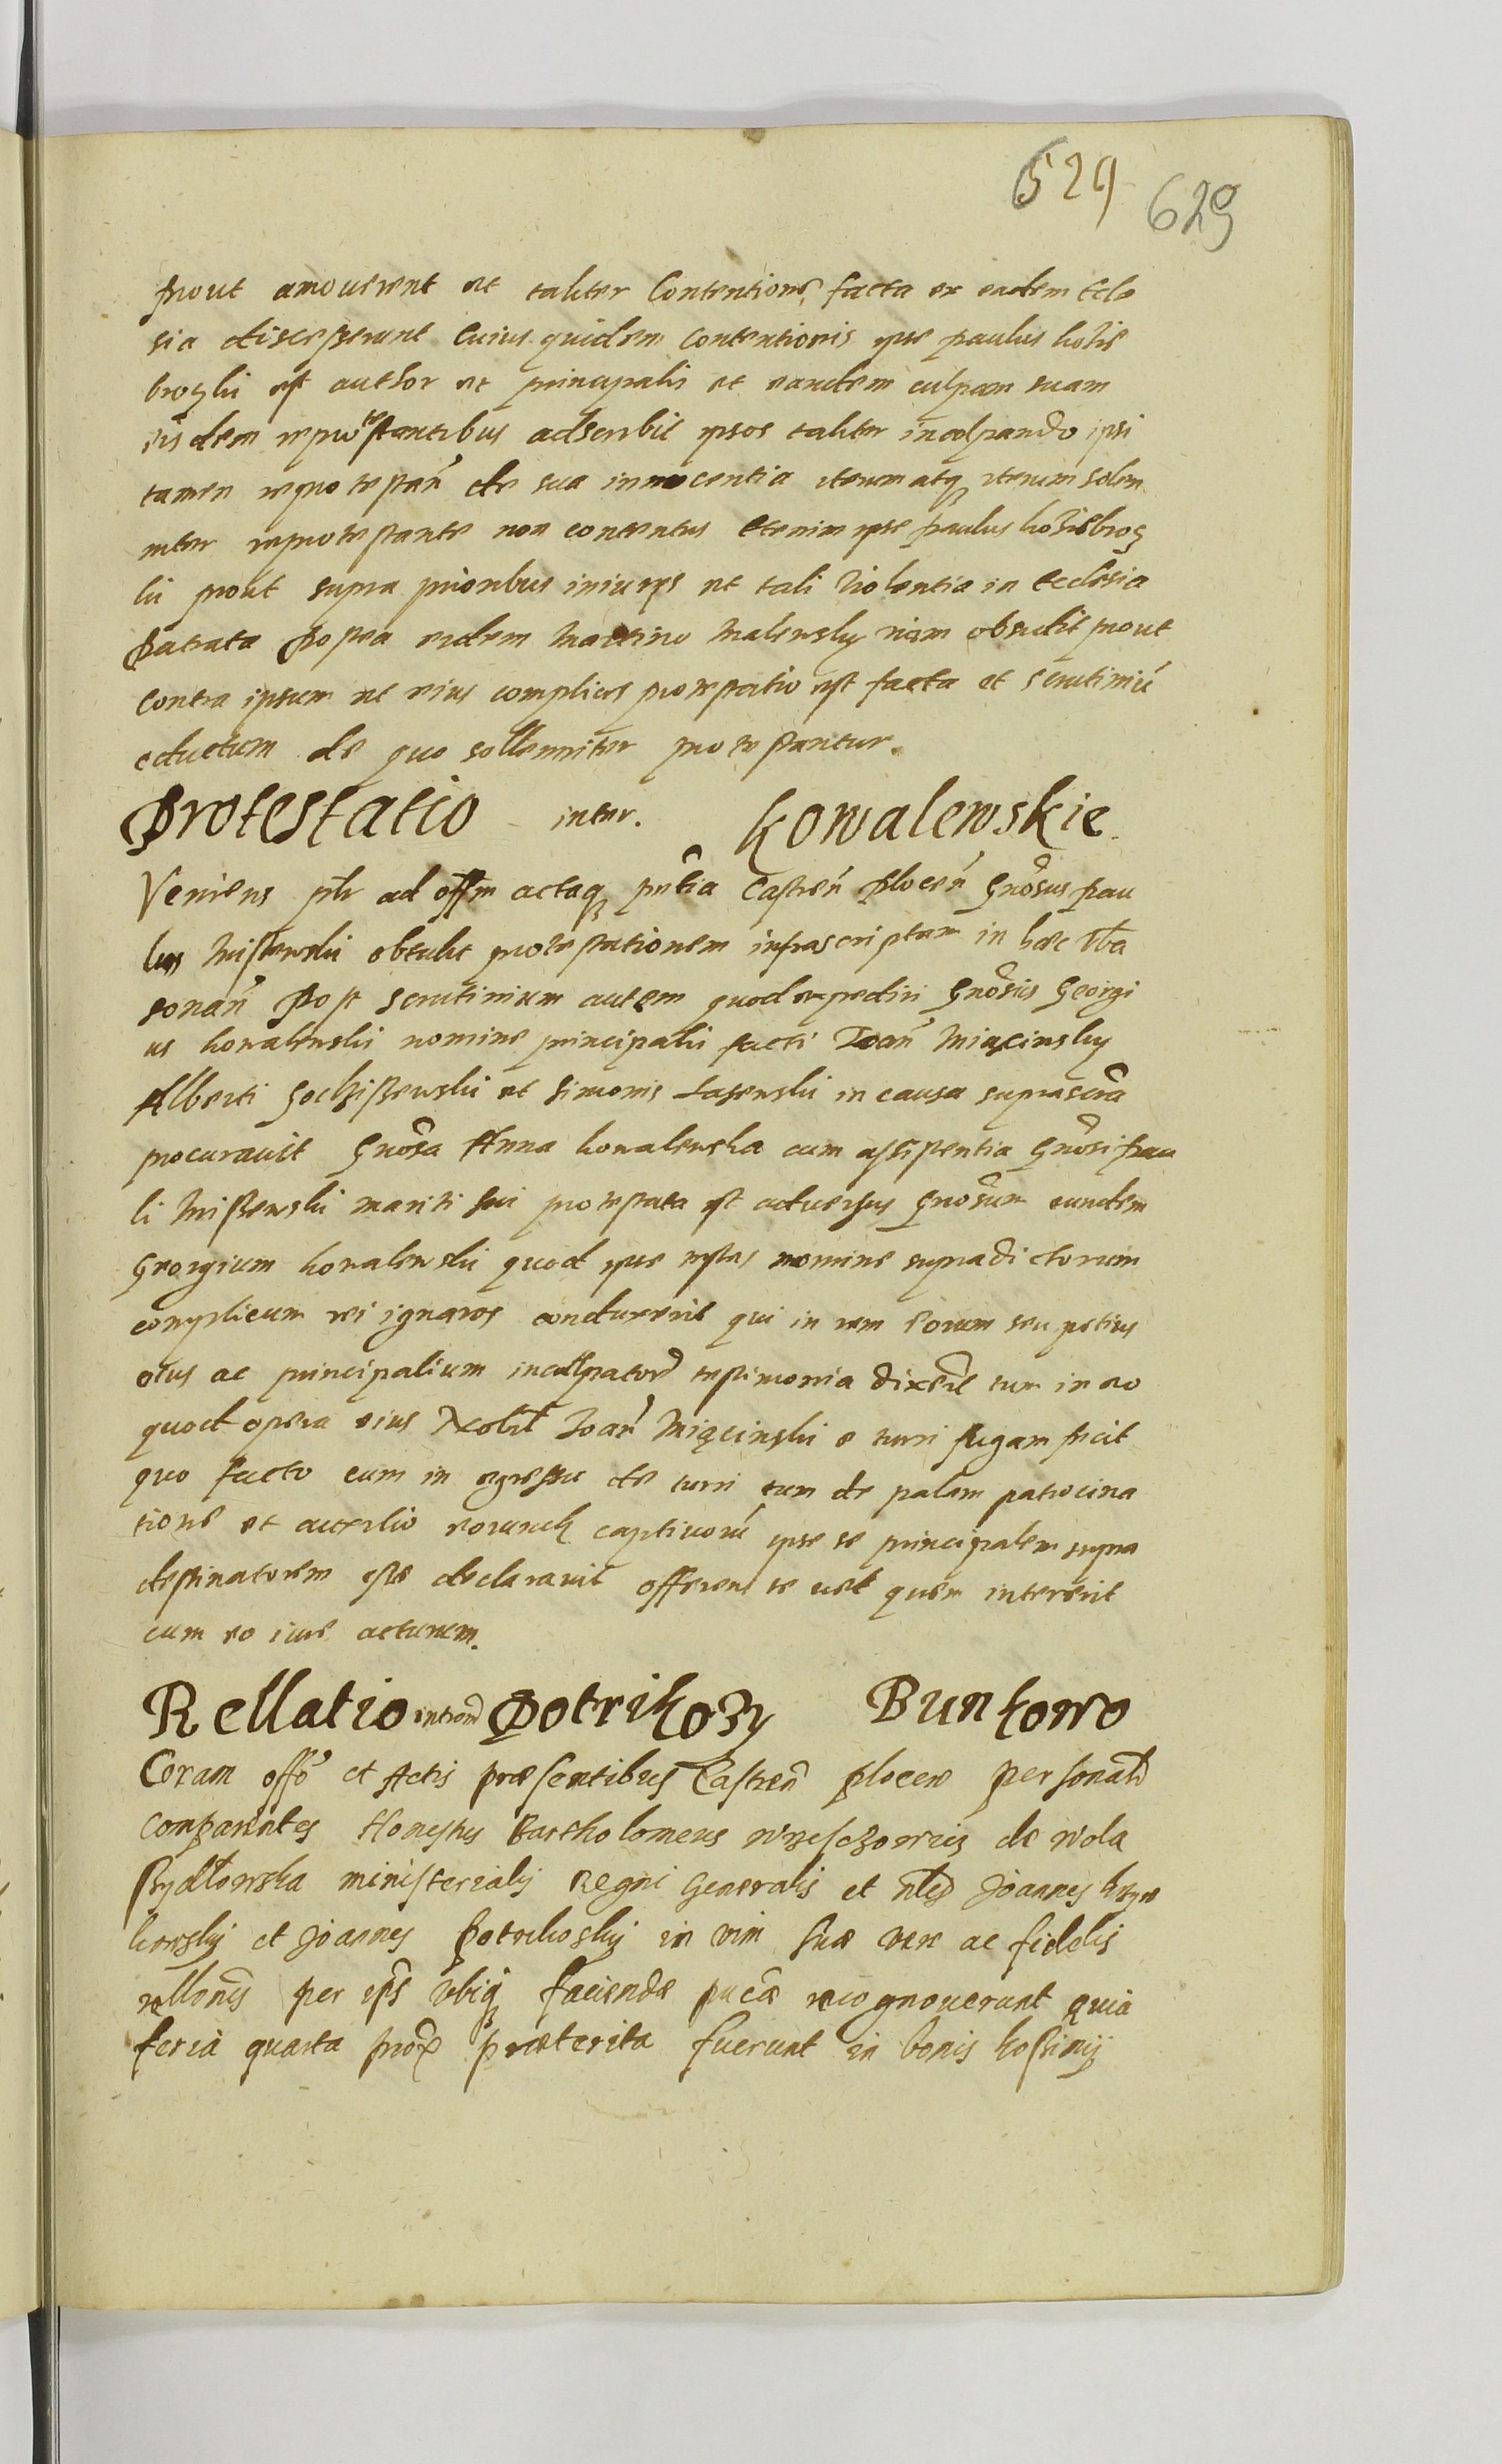 529 629
prout amouerent et taliter Contentione facta ex eadem Eccle
sia discesserunt Cuius quidem Contentionis ipse paulus kozie
broʒki est author et principalis et eandem culpam suam
iisdem reprotestantibus adscribit ipsos taliter inculpando ipsi
tamen reprotestan̄ de sua innocentia iterum atq iterum solen
niter reprotestante non contentus Etenim ipse paulus koziebroʒ
ki prout supra prioribus iniurys et tali violentia in Ecclesia
patrata postea eidem Martino Malewsky viam obsedit prout
Contra ipsum et eius complices protestatio est facta et scrutiniū
eductum de quo sollenniter protestantur.
Protestatio inter. Kowalewskie.
Veniens plr ad offm actaq pntia Castren̄ Plocen̄ Gnosus Pau
lus Miszewski obtulit protestationem infrascriptam in hæc vba
sonan̄ Post scrutinium autem quod expediri Gnosus Georgi
us kowalewski nomine principalis facti Joan̄ Miącinsky
Alberti Gocliszewski et Simonis Lasewski in causa suprascra
procurauit Gnosa Anna kowalewska cum assistentia Gnosi Pau
li Miszewski mariti sui protestata est aduersus Gnosum eundem
Georgium kowalewski quod ipse testes nomine supradictorum
complicum rei ignaros conduxerit qui in rem eorum seu potius
eius ac principalium inculpator testimonia dixerūt tum in eo
quod opera eius Nobil Joan̄ Miącinski e turri fugam fecit
quo facto eum in egressu de turri tum de palam patrocina
tione et auxilio eorund captiuorū ipse se principalem supra
destinatorem esse declarauit offerens se uel quem intererit
cum eo iure acturum.
Rellatio introm Potrikozy Bunkowo
Coram offo et Actis præsentibus Castren̄ plocen personalr
Comparentes Honestus Bartholomeus wrzesczowicz de wola
Bydlowska ministerialis Regni Generalis et nles Joannes krzyw
kowsky et Joannes Potrikosky in vim suæ veræ ac fidelis
rellonis per ipsos vbiq faciendæ pncæ recognouerunt quia
feria quarta prox præterita fuerunt in bonis kossinij